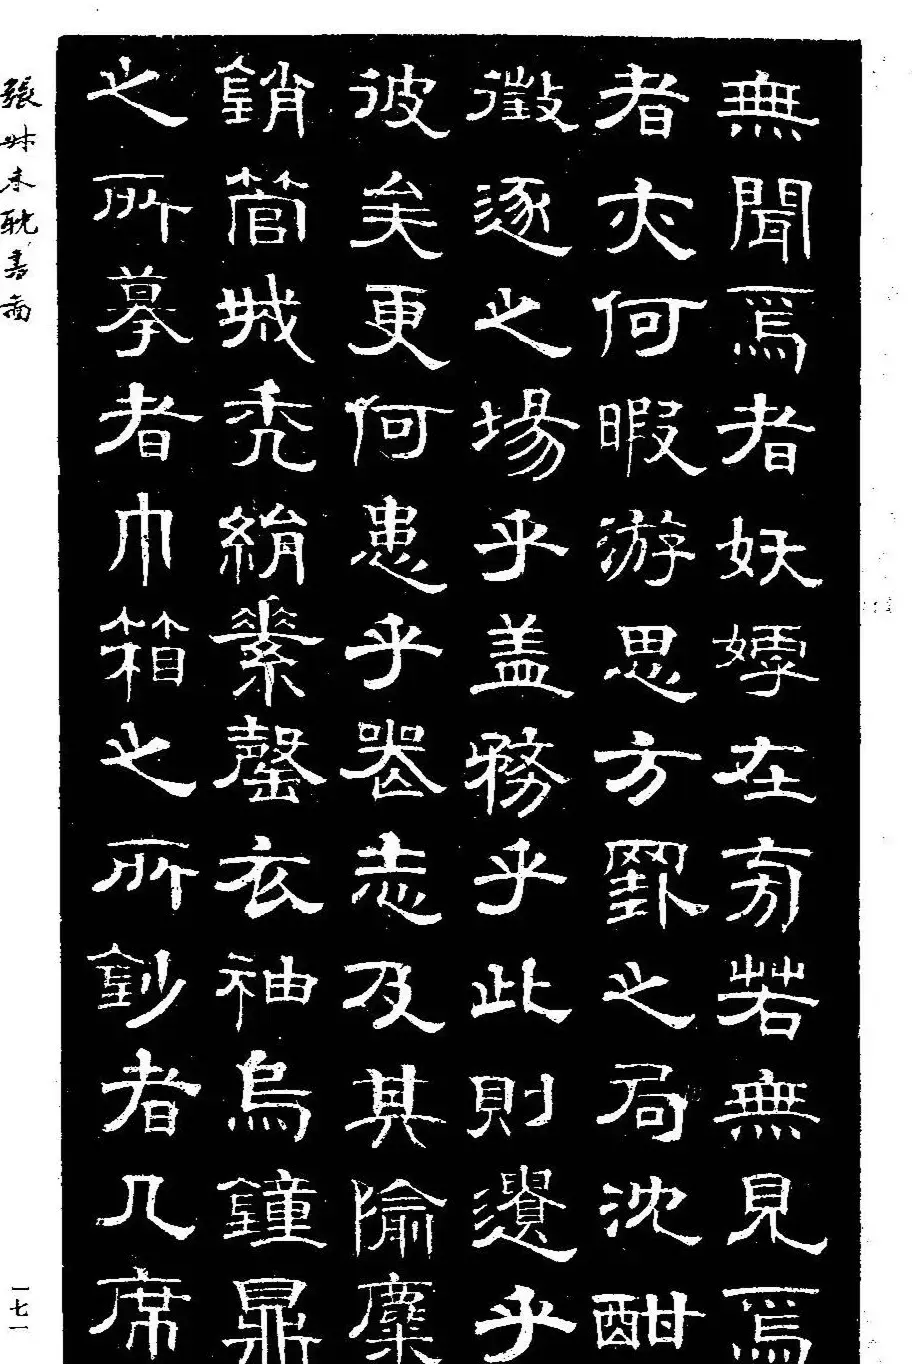 無聞焉者妖嫮在旁若無見焉
者亦何暇游思方罫之局沈酣
徵逐之場乎盖務乎此則遺乎
彼矣更何患乎喪志及其隃麋
銷管城禿絹素罄衣袖烏鐘鼎
之所摹者巾箱之所鈔者几席
張叔未耽書啚
一七一